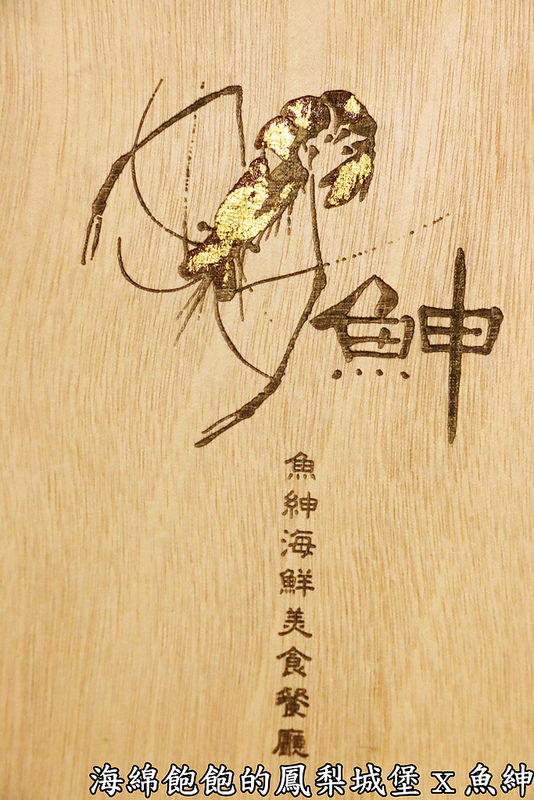 魚申
魚紳海鮮美食餐廳
海綿飽飽的鳳梨城堡 X 魚紳